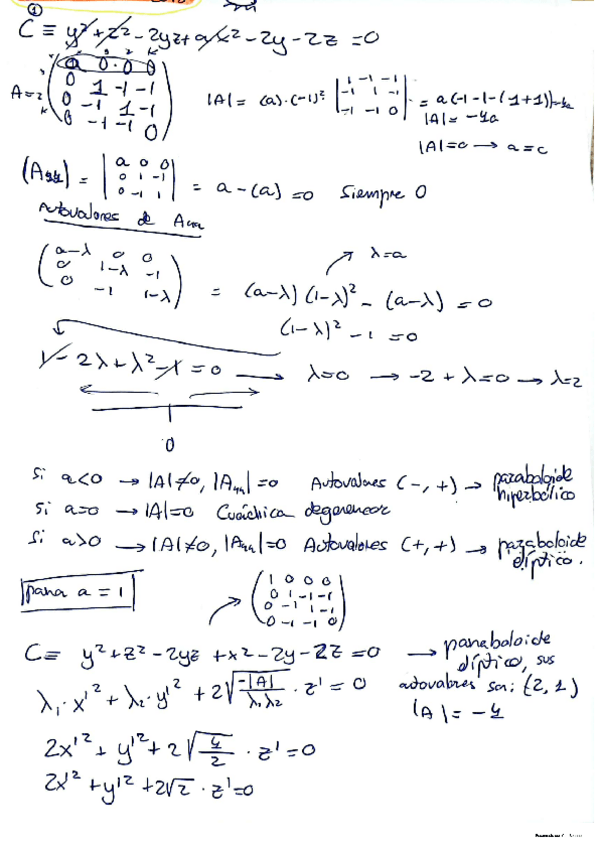 ①
C ≡ y² + z² - 2yz + ax² - 2y - 2z = 0
A = (a 0 0 0
0 1 -1 -1
0 -1 1 -1
0 -1 -1 0)
|A| = (a)·(-1)² |1 -1 -1
-1 1 -1
-1 -1 0| = a(-1-1-(1+1)) = -4a
|A| = -4a
|A|=0 → a=0
(A₄₄) = |a 0 0
0 1 -1
0 -1 1| = a-(a) = 0 siempre 0
Autovalores de A₄₄
(a-λ 0 0
0 1-λ -1
0 -1 1-λ) = (a-λ)(1-λ)² - (a-λ) = 0
λ=a
(1-λ)² - 1 = 0
1 - 2λ + λ² - 1 = 0 → λ=0 → -2+λ=0 → λ=2
0
Si a<0 → |A|≠0, |A₄₄|=0 Autovalores (-,+) → paraboloide hiperbólico
si a=0 → |A|=0 Cuádrica degenerada
si a>0 → |A|≠0, |A₄₄|=0 Autovalores (+,+) → paraboloide elíptico.
para a = 1
(1 0 0 0
0 1 -1 -1
0 -1 1 -1
0 -1 -1 0)
C ≡ y² + z² - 2yz + x² - 2y - 2z = 0 → paraboloide elíptico, sus autovalores son: (2,1)
|A| = -4
λ₁·x'² + λ₂·y'² + 2√(-|A|/λ₁λ₂)·z' = 0
2x'² + y'² + 2√(4/2)·z' = 0
2x'² + y'² + 2√2·z' = 0